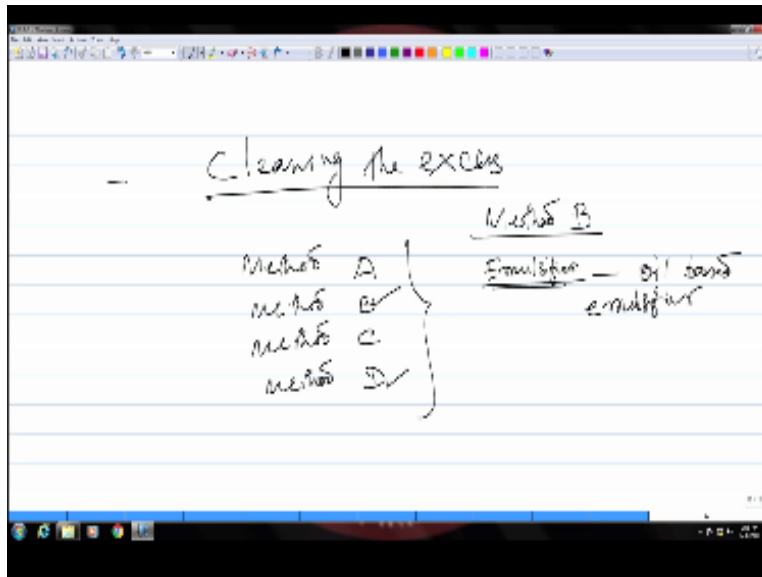 Cleaning the excess
Method A
Method B
Method C
Method D
Method B
Emulsifier — oil based
emulsifier